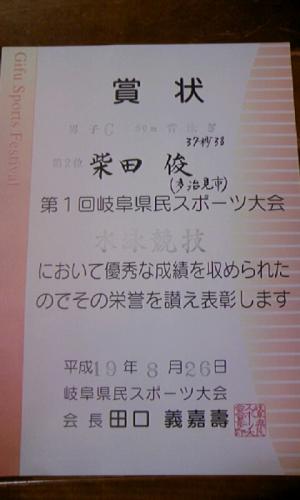 Gifu Sports Festival
賞状
男子C 50m 背泳ぎ
37秒38
第2位 柴田 俊
(多治見市)
第1回岐阜県民スポーツ大会
水泳競技
において優秀な成績を収められた
のでその栄誉を讃え表彰します
平成19年8月26日
岐阜県民スポーツ大会
会長 田口 義嘉壽